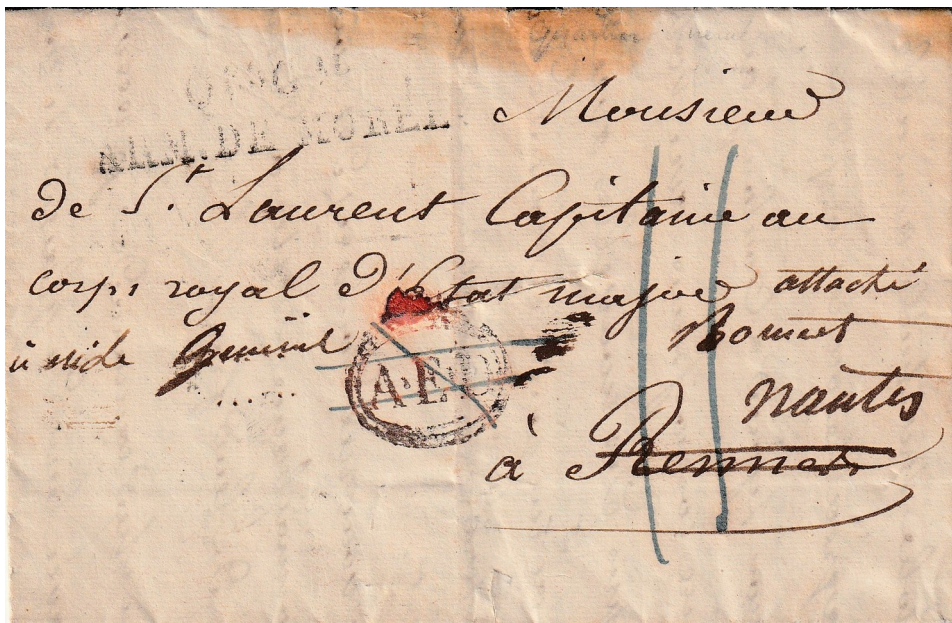 ARM. DE MOREE
Monsieur
de St. Laurent Capitaine au
corps royal d'État major attaché
Général Bonnet
A.E.D.
Nantes
à Rennes
11